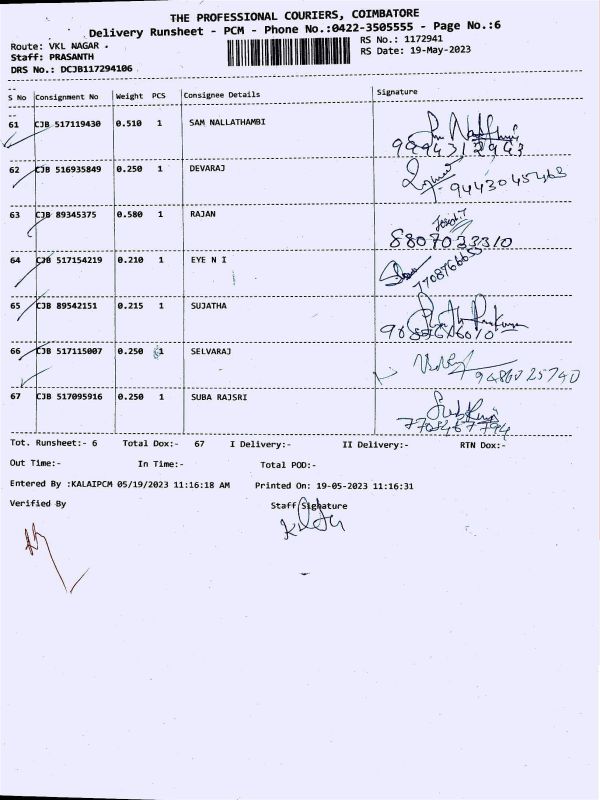 THE PROFESSIONAL COURIERS, COIMBATORE
Delivery Runsheet - PCM - Phone No.:0422-3505555 - Page No.:6
Route: VKL NAGAR .
RS No.: 1172941
Staff: PRASANTH
RS Date: 19-May-2023
DRS No.: DCJB117294106
S No Consignment No Weight PCS Consignee Details Signature
61 CJB 517119430 0.510 1 SAM NALLATHAMBI
62 CJB 516935849 0.250 1 DEVARAJ
9443045468
63 CJB 89345375 0.580 1 RAJAN
8807033310
64 CJB 517154219 0.210 1 EYE N I
65 CJB 89542151 0.215 1 SUJATHA
66 CJB 517115007 0.250 1 SELVARAJ
67 CJB 517095916 0.250 1 SUBA RAJSRI
Tot. Runsheet:- 6 Total Dox:- 67 I Delivery:- II Delivery:- RTN Dox:-
Out Time:- In Time:- Total POD:-
Entered By :KALAIPCM 05/19/2023 11:16:18 AM Printed On: 19-05-2023 11:16:31
Verified By Staff Signature